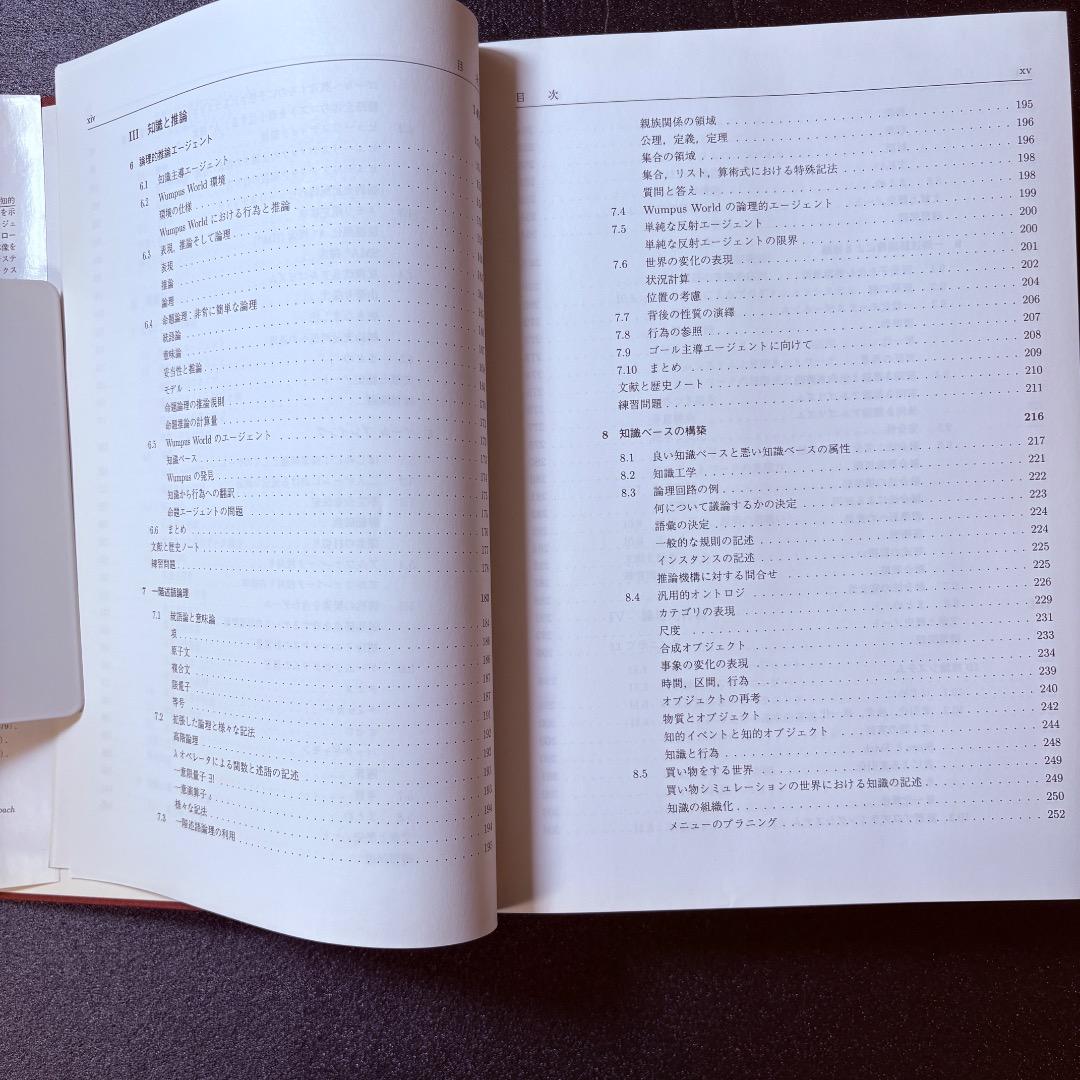 xiv
目
III 知識と推論
6 論理的推論エージェント
6.1 知識主導エージェント
6.2 Wumpus World 環境
環境の仕様
Wumpus World における行為と推論
6.3 表現，推論そして論理
表現
推論
論理
6.4 命題論理：非常に簡単な論理
統語論
意味論
妥当性と推論
モデル
命題論理の推論規則
命題推論の計算量
6.5 Wumpus World のエージェント
知識ベース
Wumpus の発見
知識から行為への翻訳
命題エージェントの問題
6.6 まとめ
文献と歴史ノート 177
練習問題 178
7 一階述語論理
7.1 統語論と意味論
項
原子文
複合文
限量子 187
等号
7.2 拡張した論理と様々な記法 191
高階論理 192
λオペレータによる関数と述語の記述 192
一意限量子 ∃! 193
一意演算子
様々な記法 194
7.3 一階述語論理の利用 194
195
目 次
xv
親族関係の領域 195
公理，定義，定理 196
集合の領域 196
集合，リスト，算術式における特殊記法 198
質問と答え 198
7.4 Wumpus World の論理的エージェント 199
7.5 単純な反射エージェント 200
単純な反射エージェントの限界 200
7.6 世界の変化の表現 201
状況計算 202
位置の考慮 204
7.7 背後の性質の演繹 206
7.8 行為の参照 207
7.9 ゴール主導エージェントに向けて 208
7.10 まとめ 209
文献と歴史ノート 210
練習問題 211
8 知識ベースの構築 216
8.1 良い知識ベースと悪い知識ベースの属性 217
8.2 知識工学 221
8.3 論理回路の例 222
何について議論するかの決定 223
語彙の決定 224
一般的な規則の記述 224
インスタンスの記述 225
推論機構に対する問合せ 225
8.4 汎用的オントロジ 226
カテゴリの表現 229
尺度 231
合成オブジェクト 233
事象の変化の表現 234
時間，区間，行為 239
オブジェクトの再考 240
物質とオブジェクト 242
知的イベントと知的オブジェクト 244
知識と行為 248
8.5 買い物をする世界 249
買い物シミュレーションの世界における知識の記述 249
知識の組織化 250
メニューのプラニング 252